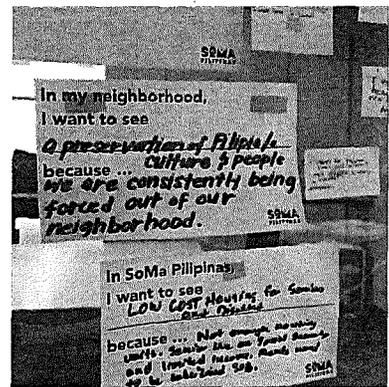 SOMA
PILIPINAS
In my neighborhood,
I want to see
a preservation of Filipin/o
culture & people
because ...
we are consistently being
forced out of our
neighborhood.
SOMA
PILIPINAS
In SoMa Pilipinas,
I want to see
LOW COST Housing for Senior
and Disabled
because ... Not enough housing
units. Senior live on fixed
and limited income. Rents need
to be
SOMA
PILIPINAS